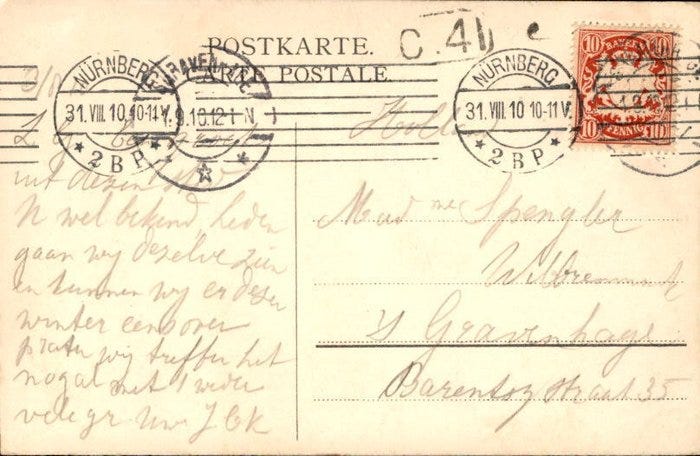 POSTKARTE.
CARTE POSTALE.
C.41
NÜRNBERG
31.VIII.10.10-11V.
2 B P
GRAVENHAGE
9.10.12-1 N
NÜRNBERG
31.VIII.10 10-11V.
2 B P
10 BAYERN 10
10 PFENNIG 10
31/8
uit dezen stad
U wel bekend, heden
gaan wij dezelve zien
en kunnen wij er dezen
winter eens over
praten wij treffen het
nogal met 't weder
vele gr Uw
Holl
Mad me Spengler
's Gravenhage
Barentsz straat 35